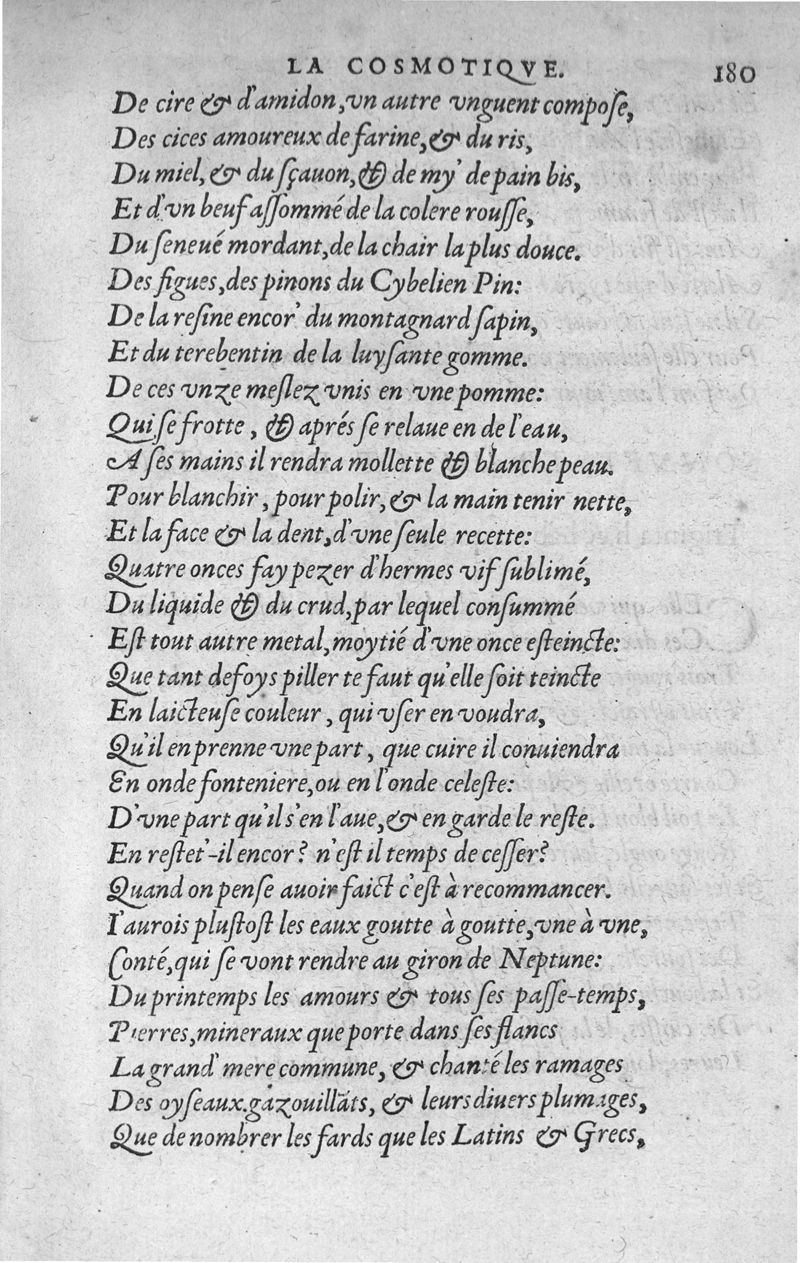 LA COSMOTIQVE. 180
De cire & d'amidon, vn autre vnguent compoſe,
Des cices amoureux de farine, & du ris,
Du miel, & du ſçauon, & de my' de pain bis,
Et d'vn beuf aſſommé de la colere rouſſe,
Du ſeneué mordant, de la chair la plus douce.
Des figues, des pinons du Cybelien Pin:
De la reſine encor' du montagnard ſapin,
Et du terebentin de la luyſante gomme.
De ces vnze meſlez vnis en vne pomme:
Qui ſe frotte, & aprés ſe relaue en de l'eau,
A ſes mains il rendra mollette & blanche peau.
Pour blanchir, pour polir, & la main tenir nette,
Et la face & la dent, d'vne ſeule recette:
Quatre onces fay pezer d'hermes vif ſublimé,
Du liquide & du crud, par lequel conſummé
Eſt tout autre metal, moytié d'vne once eſteincte:
Que tant defoys piller te faut qu'elle ſoit teincte
En laicteuſe couleur, qui vſer en voudra,
Qu'il en prenne vne part, que cuire il conuiendra
En onde fonteniere, ou en l'onde celeſte:
D'vne part qu'il s'en l'aue, & en garde le reſte.
En reſtet'-il encor? n'eſt il temps de ceſſer?
Quand on penſe auoir faict c'eſt à recommancer.
I'aurois pluſtoſt les eaux goutte à goutte, vne à vne,
Conté, qui ſe vont rendre au giron de Neptune:
Du printemps les amours & tous ſes paſſe-temps,
Pierres, mineraux que porte dans ſes flancs
La grand' mere commune, & chanté les ramages
Des oyſeaux gazouillãts, & leurs diuers plumages,
Que de nombrer les fards que les Latins & Grecs,